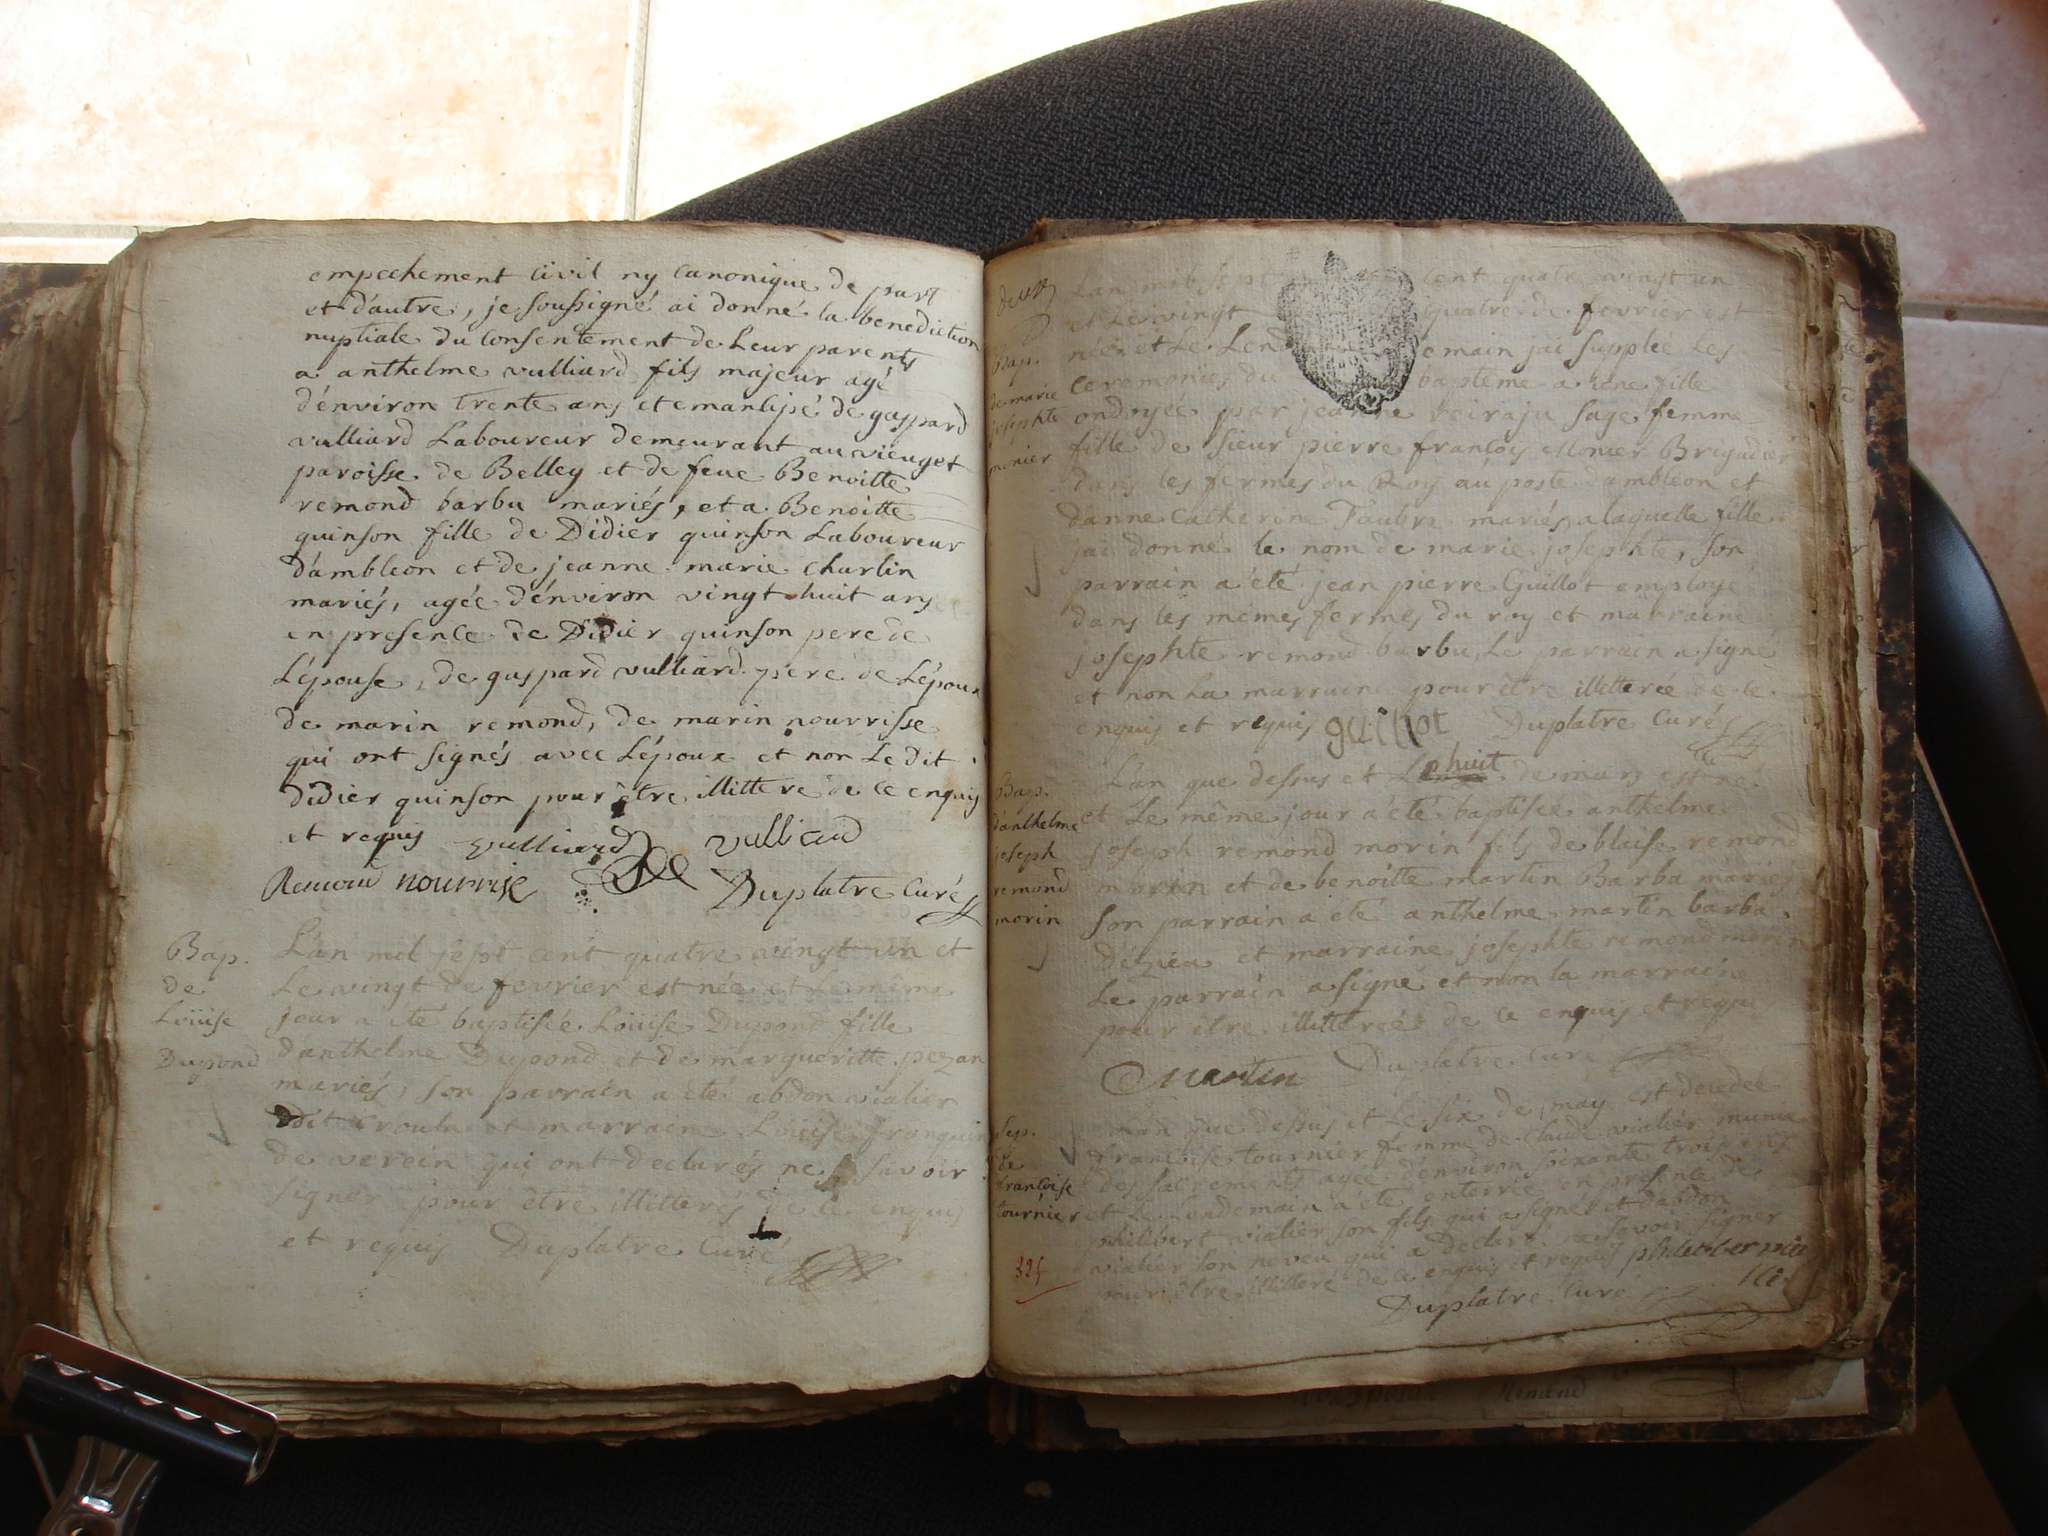 empechement civil ny canonique de part
et d'autre, je soussigné ai donné la benediction
nuptiale du consentement de Leur parents
a anthelme vulliard fils majeur agé
d'énviron trente ans et emancipé de gaspard
vulliard Laboureur demeurant au vieuget
paroisse de Belley et de feue Benoitte
remond barbu mariés, et a Benoitte
quinson fille de Didier quinson Laboureur
d'ambleon et de jeanne marie charlin
mariés, agée d'énviron vingt huit ans
en presence de Didier quinson pere de
L'épouse, de gaspard vulliard pere de L'époux
de marin remond, de marin nourrisse
qui ont signés avec L'époux et non Le dit
didier quinson pour être illitteré de ce enquis
et requis vulliard vulliard
Remond nourrise Duplatre Curé
Bap.
de
Loüise
Dupond
L'an mil sept cent quatre vingt un et
Le vingt de fevrier est née et Le même
jour a été baptisée Loüise Dupond fille
d'anthelme Dupond et de margueritte pezan
mariés, son parrain a été abdon vialier
dit croula et marraine Loüise franquin
de verein qui ont declarés ne savoir
signer pour être illitterés de ce enquis
et requis Duplatre Curé
deux
Bap.
de marie
josephte
monier
L'an mil sept cent quatre vingt un
et Le vingt quatre de fevrier est
née et Le Lendemain jai supplée Les
Ceremonies du baptême a une fille
ondoyée par jeanne peiraju sage femme
fille de sieur pierre françois Monier Brigadier
dans les fermes du Roy au poste d'ambleon et
d'anne Catherin mariés, a laquelle fille
jai donné le nom de marie josephte, son
parrain a été jean pierre Guillot employé
dans les mêmes fermes du roy et marraine
josephte remond barbu, Le parrain a signé
et non La marraine pour être illitterée de ce
enquis et requis guillot Duplatre Curé
Bap.
d'anthelme
joseph
remond
morin
L'an que dessus et Le huit de mars est né
et Le même jour a été baptisée anthelme
joseph remond morin fils de blaise remond
morin et de benoitte martin Barba mariés
Son parrain a été anthelme martin barba
d'ézieu et marraine josephte remond morin
Le parrain a signé et non la marraine
pour être illitterée de ce enquis et requis
Martin Duplatre Curé
Sep.
de
francoise
tournier
L'an que dessus et Le six de may est decedée
francoise tournier femme de Claude vialier munie
des sacrements agée d'énviron soixante trois ans
et Le Lendemain a été enterrée en presence de
philibert vialier son fils qui a signé et d'abdon
vialier son neveu qui a declaré ne savoir signer
pour être illitteré de ce enquis et requis philibert via
lie
Duplatre Curé